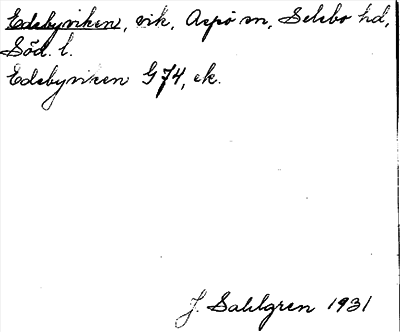 Edebyviken, vik, Aspö sn, Selebo hd,
Söd. l.
Edebyviken G74, ek.
J. Sahlgren 1931